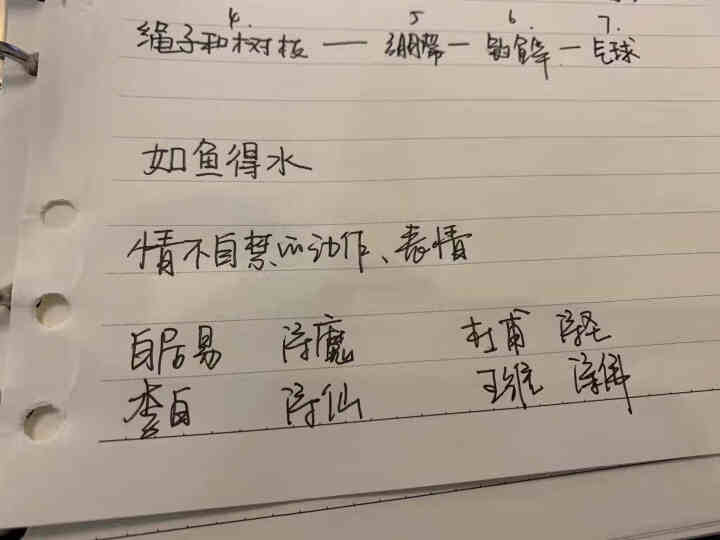 4. 5 6. 7.
绳子和树枝 — 绷带 — 钓鱼竿 — 气球
如鱼得水
情不自禁的动作、表情
白居易 诗魔 杜甫 诗圣
李白 诗仙 王维 诗佛